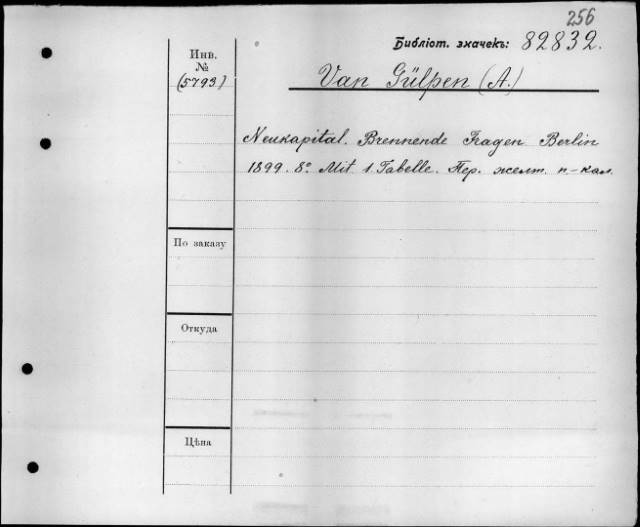 256
Библiот. значекъ: 82832.
Инв.
№
(5793)
Van Gülpen (A.)
Neukapital. Brennende Fragen Berlin
1899. 8º Mit 1 Tabelle. Пер. желт. п-кал.
По заказу
Откуда
Цѣна